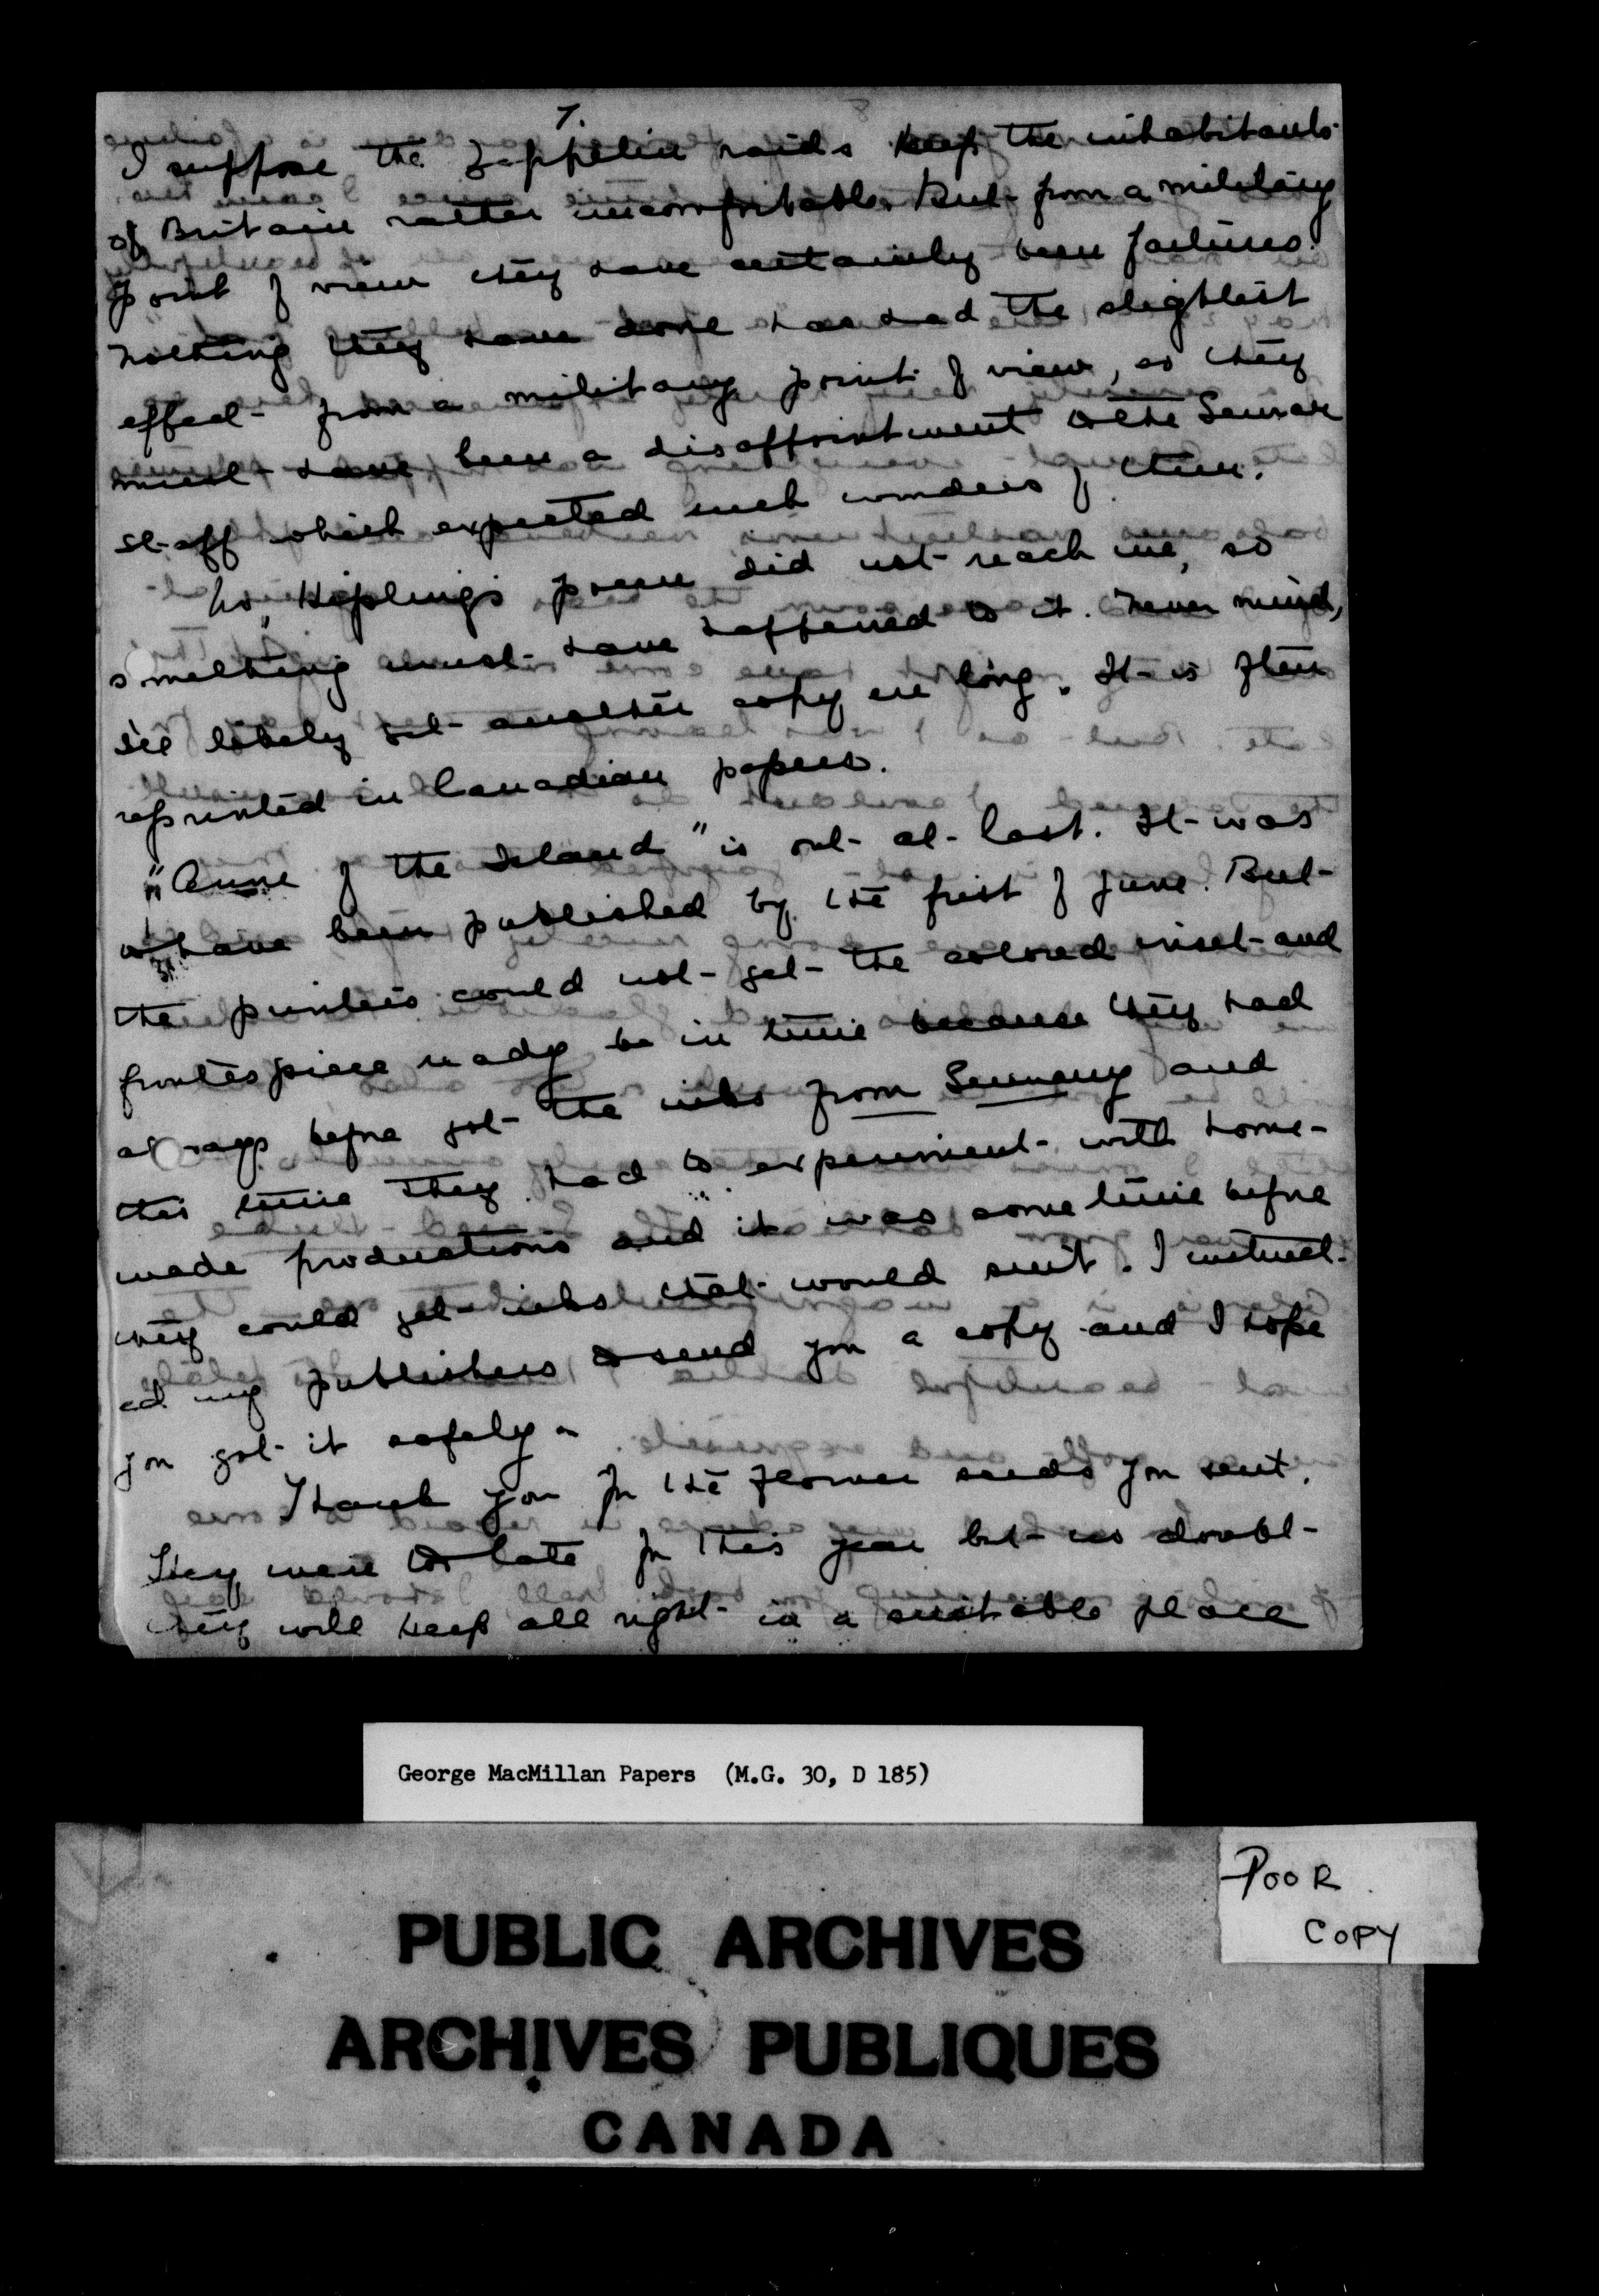 7.
I suppose the Zeppelin raids keep the inhabitants
of Britain rather uncomfortable. But from a military
point of view they have certainly been failures.
Nothing they have done has had the slightest
effect from a military point of view, so they
must have been a disappointment to the German
staff which expected such wonders of them.
No, Kipling's poem did not reach me, so
something must have happened to it. Never mind,
I'll likely get another copy ere long. It is often
reprinted in Canadian papers.
"Anne of the Island" is out at last. It was
to have been published by the first of June. But
the printers could not get the colored inset and
frontespiece ready in time because they had
always before got the inks from Germany and
this time they had to experiment with home-
made productions and it was some time before
they could get inks that would suit. I instruct-
ed my publishers to send you a copy and I hope
you got it safely.
Thank you for the flower seeds you sent.
They were too late for this year but no doubt
they will keep all right in a suitable place
George MacMillan Papers (M.G. 30, D 185)
POOR
COPY
PUBLIC ARCHIVES
ARCHIVES PUBLIQUES
CANADA